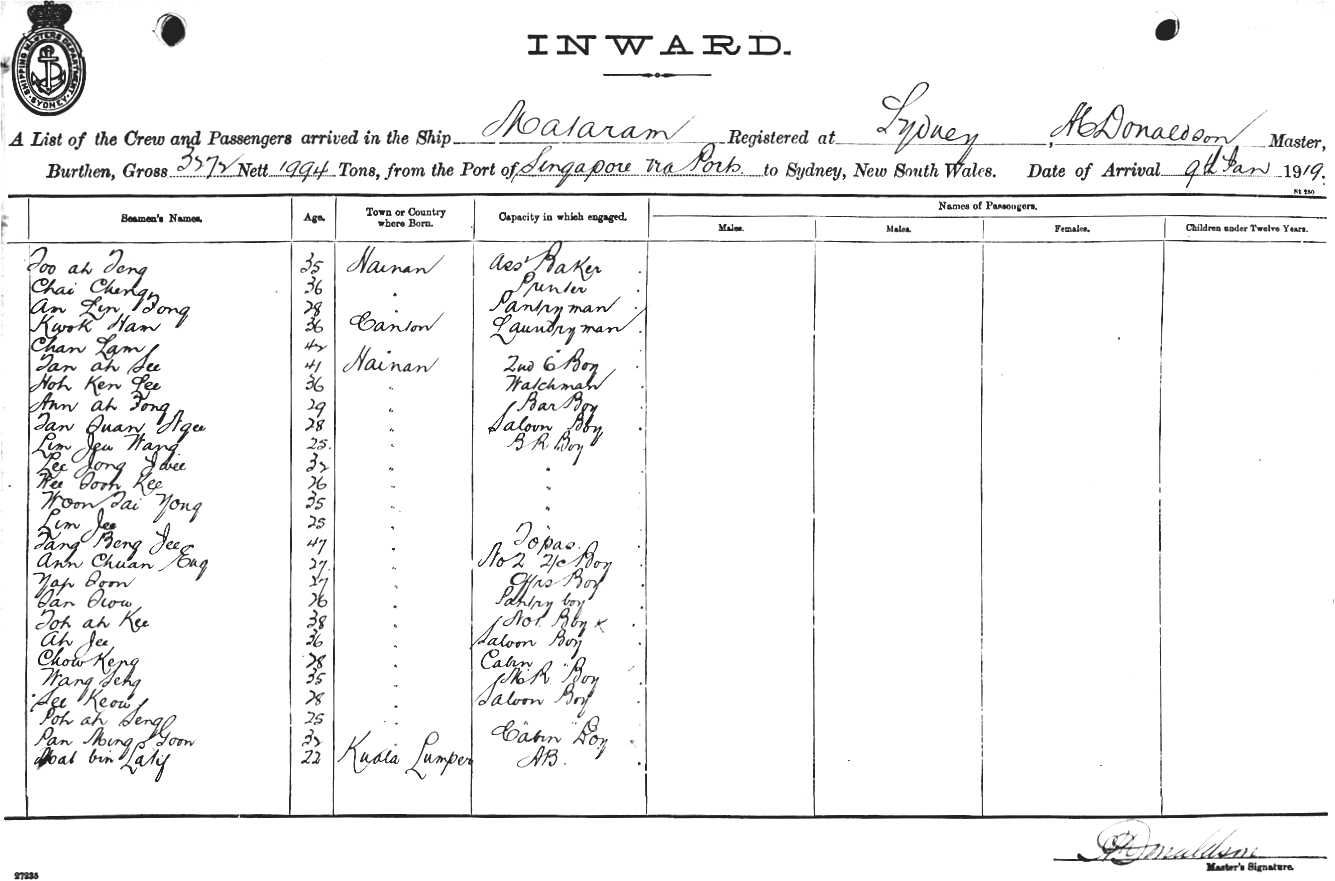 SHIPPING MASTERS DEPARTMENT
SYDNEY
INWARD.
A List of the Crew and Passengers arrived in the Ship Mataram Registered at Sydney, Donaldson Master,
Burthen, Gross 3272 Nett 1994 Tons, from the Port of Singapore via Ports to Sydney, New South Wales. Date of Arrival 9th Jan 1919.
St 250
Seamen's Names. Age. Town or Country where Born. Capacity in which engaged. Names of Passengers.
Males. Males. Females. Children under Twelve Years.
Too ah Teng 35 Hainan Asst Baker
Chai Cheng 36 " Printer
An Lin Fong 28 " Pantryman
Kwok Ham 36 Canton Laundryman
Chan Lam 42 " "
Tan ah See 41 Hainan 2nd C Boy
Hoh Ken Lee 36 " Watchman
Ann ah Fong 29 " Bar Boy
Tan Quan Ngee 28 " Saloon Boy
Lim Jeu Wang 25 " B R Boy
Lee Jong 32 " "
Wee Tooh Kee 26 " "
Woon Tai Yong 35 " "
Lim Jee 25 "
Tang Beng Jee 47 " Topas
Ann Chuan Eng 27 " No 2 2/c Boy
Yap Toon 27 " Offrs Boy
Tan Tiow 26 " Pantry boy
Toh ah Kee 38 " No 1 Boy x
Ah Jee 36 " Saloon Boy
Chow Keng 28 " Cabin "
Wang Seng 35 " M R Boy
See Keow 28 " Saloon Boy
Poh ah Seng 25 " "
Pan Ming Goon 32 " Cabin Boy
Mat bin Latif 22 Kuala Lumper AB.
Donaldson
Master's Signature.
27235